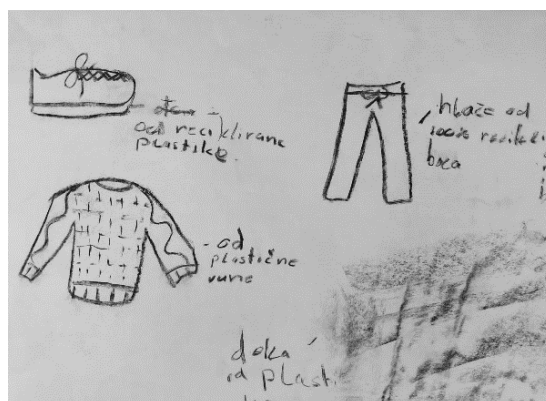 od reciklirane
plastike.
hlače od
100% recikli
boca
- od
plastične
vune
deka
od plasti